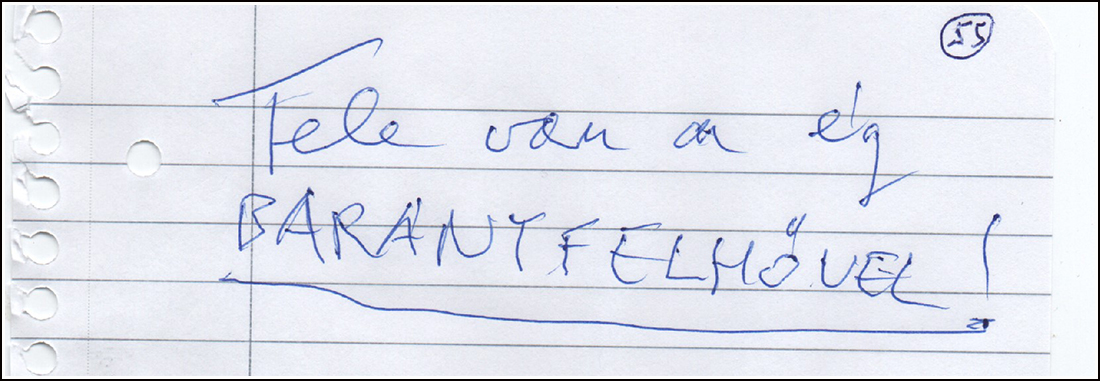 55
Tele van a ég
BARANYFELHŐVEL!